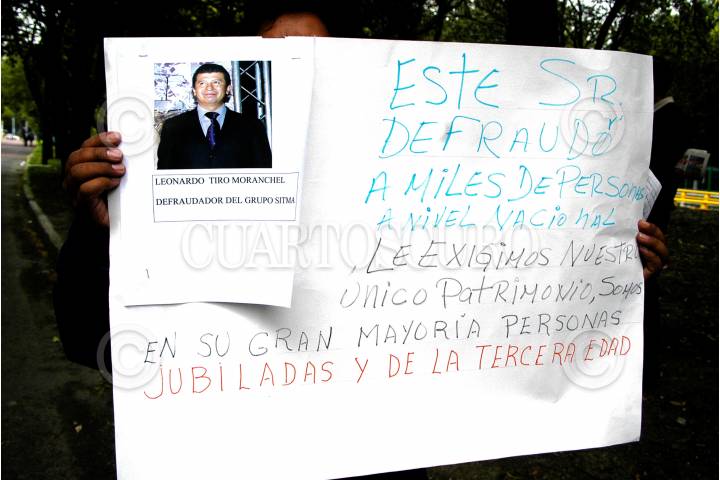 LEONARDO TIRO MORANCHEL
DEFRAUDADOR DEL GRUPO SITMA
ESTE SR.
DEFRAUDÓ
A MILES DE PERSONAS
A NIVEL NACIONAL
, LE EXIGIMOS NUESTRO
UNICO PATRIMONIO, SOMOS
EN SU GRAN MAYORÍA PERSONAS
JUBILADAS Y DE LA TERCERA EDAD
CUARTOSCURO